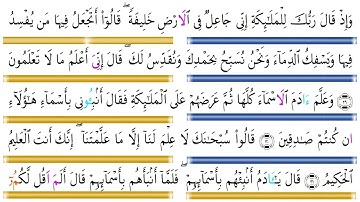 وَإِذْ قَالَ رَبُّكَ لِلْمَلَـٰٓئِكَةِ إِنِّى جَاعِلٌ فِى الَارْضِ خَلِيفَةً قَالُوٓا۟ أَتَجْعَلُ فِيهَا مَن يُفْسِدُ
فِيهَا وَيَسْفِكُ الدِّمَآءَ وَنَحْنُ نُسَبِّحُ بِحَمْدِكَ وَنُقَدِّسُ لَكَ قَالَ إِنِّىَ أَعْلَمُ مَا لَا تَعْلَمُونَ
وَعَلَّمَ ءَادَمَ الَاسْمَآءَ كُلَّهَا ثُمَّ عَرَضَهُمْ عَلَى الْمَلَـٰٓئِكَةِ فَقَالَ أَنۢبِـُٔونِى بِأَسْمَآءِ هَـٰٓؤُلَآءِ
ان كُنتُمْ صَـٰدِقِينَ قَالُوا۟ سُبْحَـٰنَكَ لَا عِلْمَ لَنَآ إِلَّا مَا عَلَّمْتَنَآ إِنَّكَ أَنتَ الْعَلِيمُ
الْحَكِيمُ قَالَ يَـٰٓـَٔادَمُ أَنۢبِئْهُم بِأَسْمَآئِهِمْ فَلَمَّآ أَنۢبَأَهُم بِأَسْمَآئِهِمْ قَالَ أَلَمَ اقُل لَّكُمُۥٓ